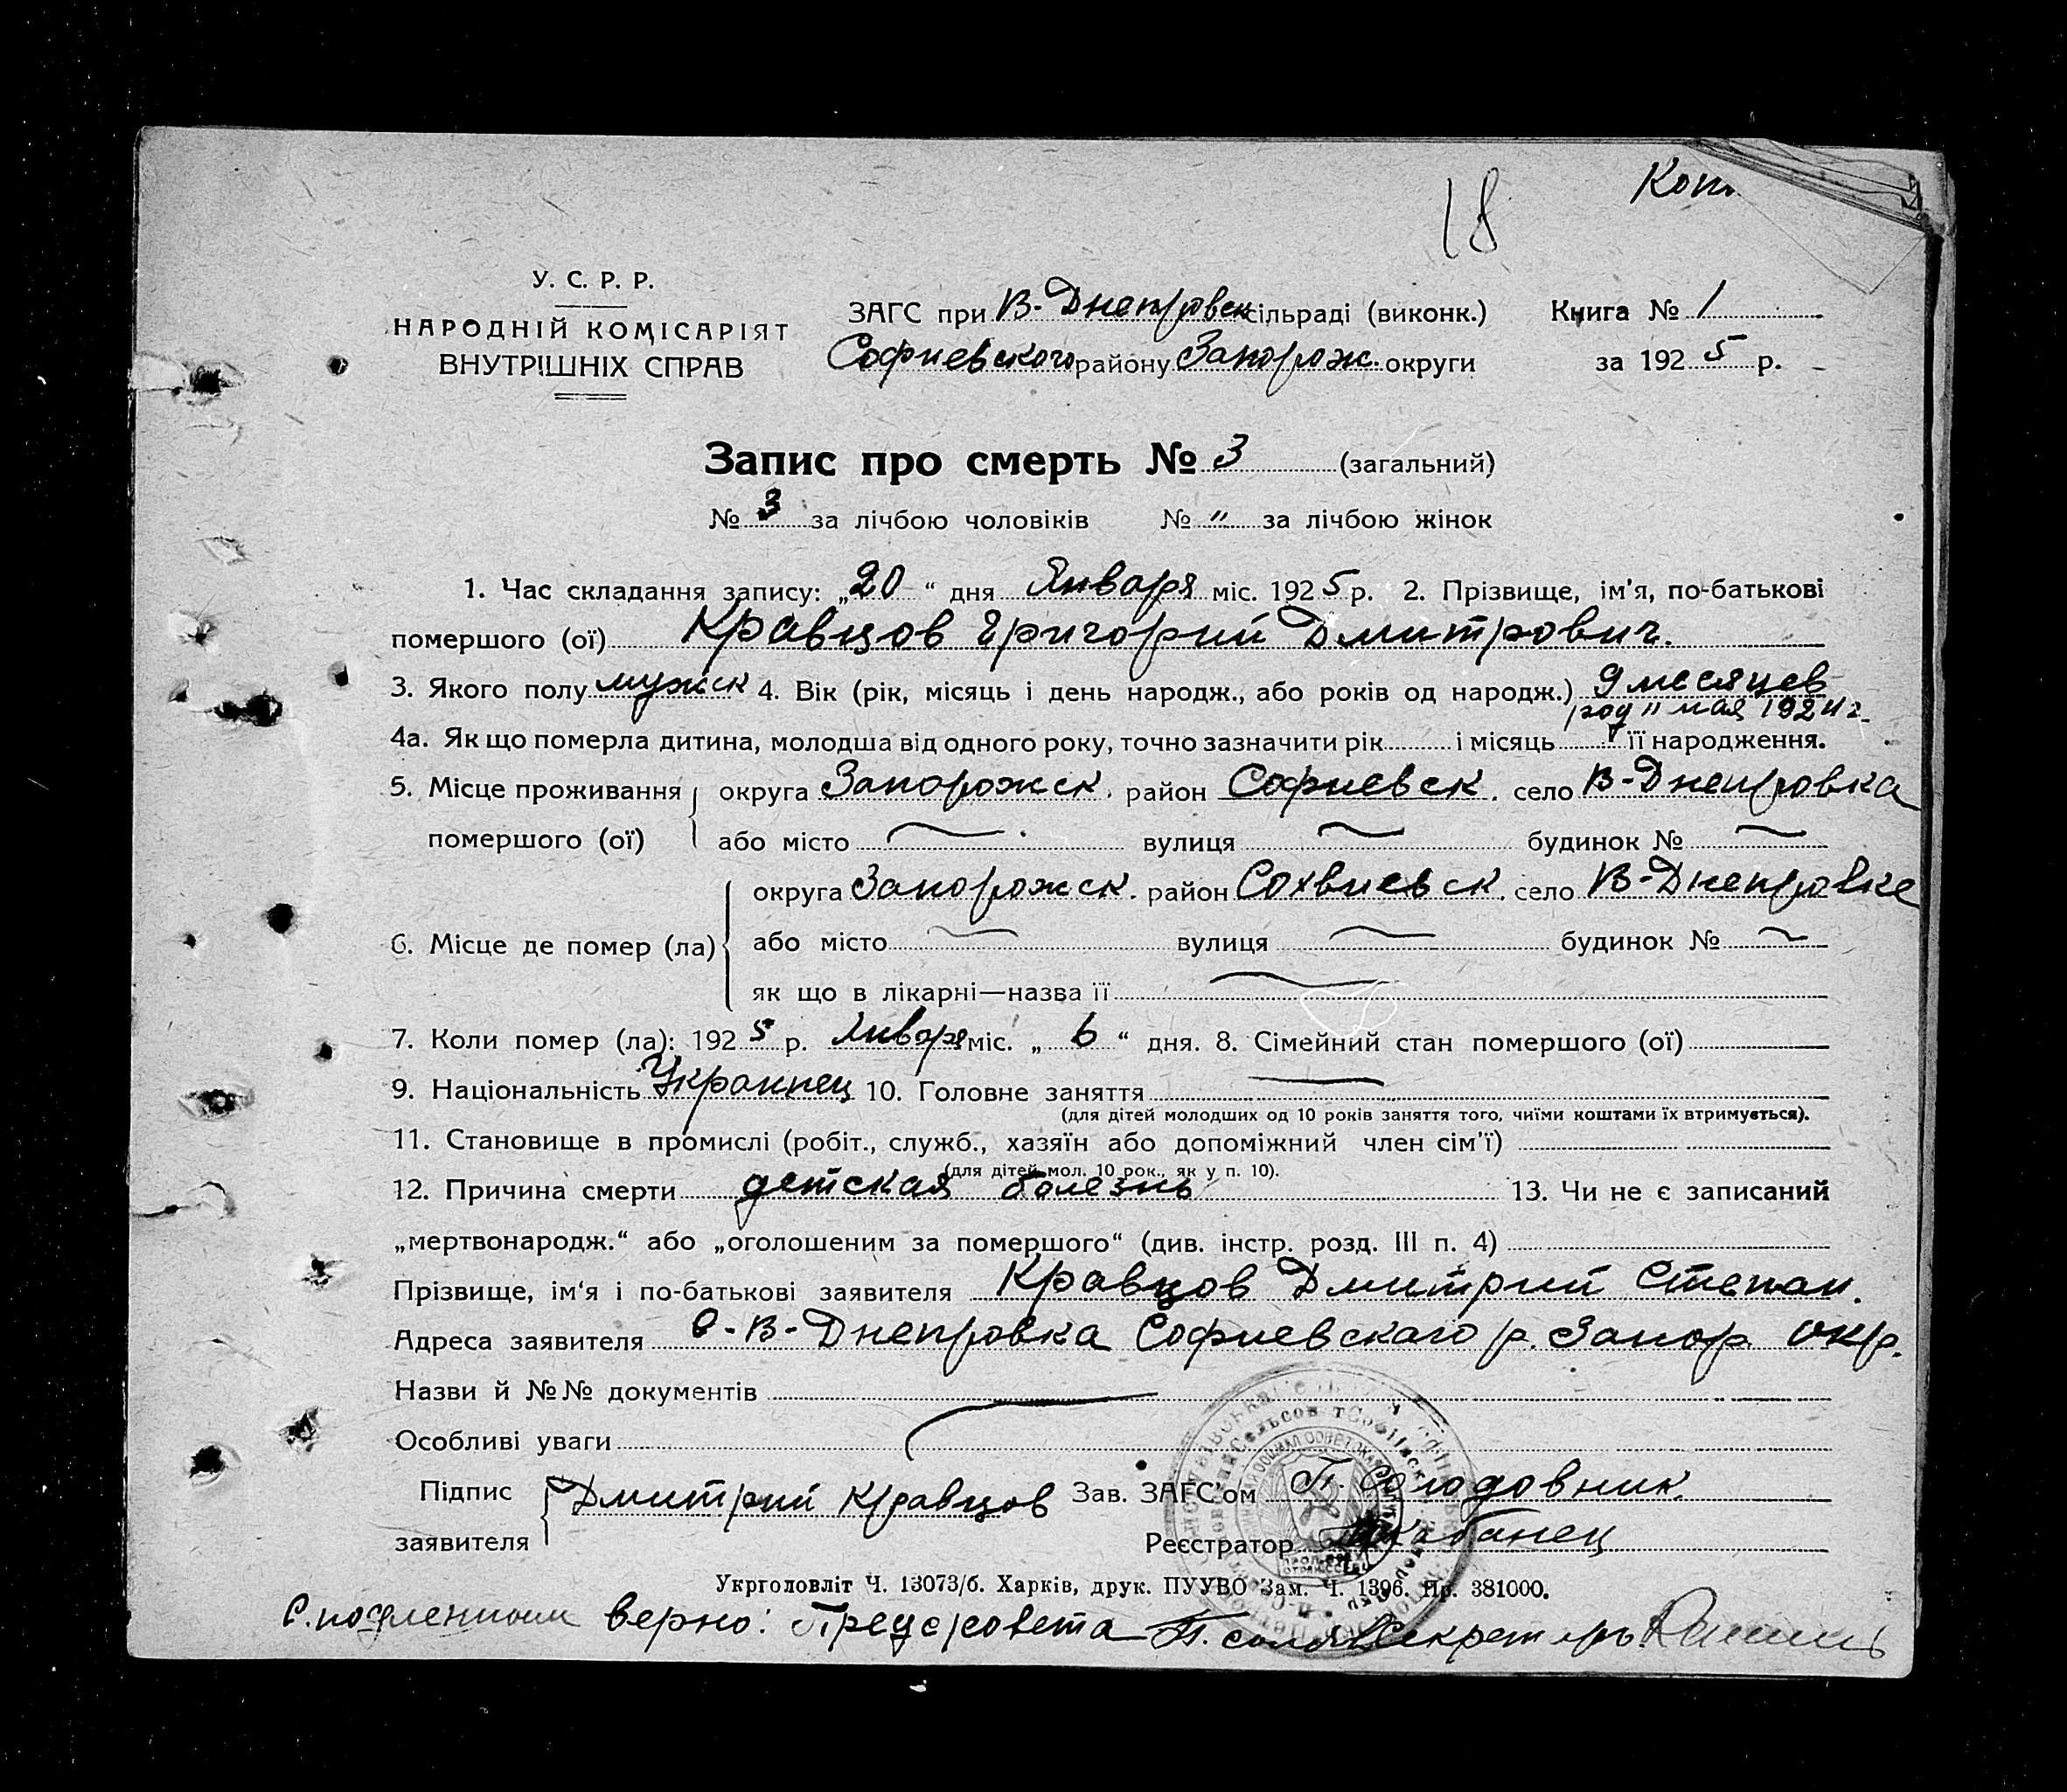 18
Коп.
У. С. Р. Р.
НАРОДНІЙ КОМІСАРІЯТ
ВНУТРІШНІХ СПРАВ
ЗАГС при В-Днепровск сільраді (виконк.) Книга № 1
Софиевского району Запорож. округи за 1925 р.
Запис про смерть № 3 (загальний)
№ 3 за лічбою чоловіків № " за лічбою жінок
1. Час складання запису: „20“ дня Января міс. 1925 р. 2. Прізвище, ім'я, по-батькові
помершого (ої) Кравцов Григорий Дмитрович.
3. Якого полу мужск 4. Вік (рік, місяць і день народж., або років од народж.) 9 месяцев
род 11 мая 1924 г.
4а. Як що померла дитина, молодша від одного року, точно зазначити рік і місяць її народження.
5. Місце проживання округа Запорожск. район Софиевск. село В-Днепровка
помершого (ої) або місто вулиця будинок №
округа Запорожск. район Сохвиевск. село В-Днепровке
6. Місце де помер (ла) або місто вулиця будинок №
як що в лікарні—назва її
7. Коли помер (ла): 1925 р. Января міс. „6“ дня. 8. Сімейний стан помершого (ої)
9. Національність Украинец 10. Головне заняття
(для дітей молодших од 10 років заняття того, чиїми коштами їх втримується).
11. Становище в промислі (робіт., служб., хазяїн або допоміжний член сім'ї)
(для дітей мол. 10 рок., як у п. 10).
12. Причина смерти детская болезнь 13. Чи не є записаний
„мертвонародж.“ або „оголошеним за помершого“ (див. інстр. розд. III п. 4)
Прізвище, ім'я і по-батькові заявителя Кравцов Дмитрий Степан.
Адреса заявителя С-В-Днепровка Софиевскаго р. Запор окр.
Назви й №№ документів
Особливі уваги
Підпис Дмитрий Кравцов Зав. ЗАГС'ом П. Солодовник
заявителя Реєстратор
Укрголовліт Ч. 13073/б. Харків, друк. ПУУВО Зам. Ч. 1396. Пр. 381000.
С подленным верно: Предсовета П. Секретарь